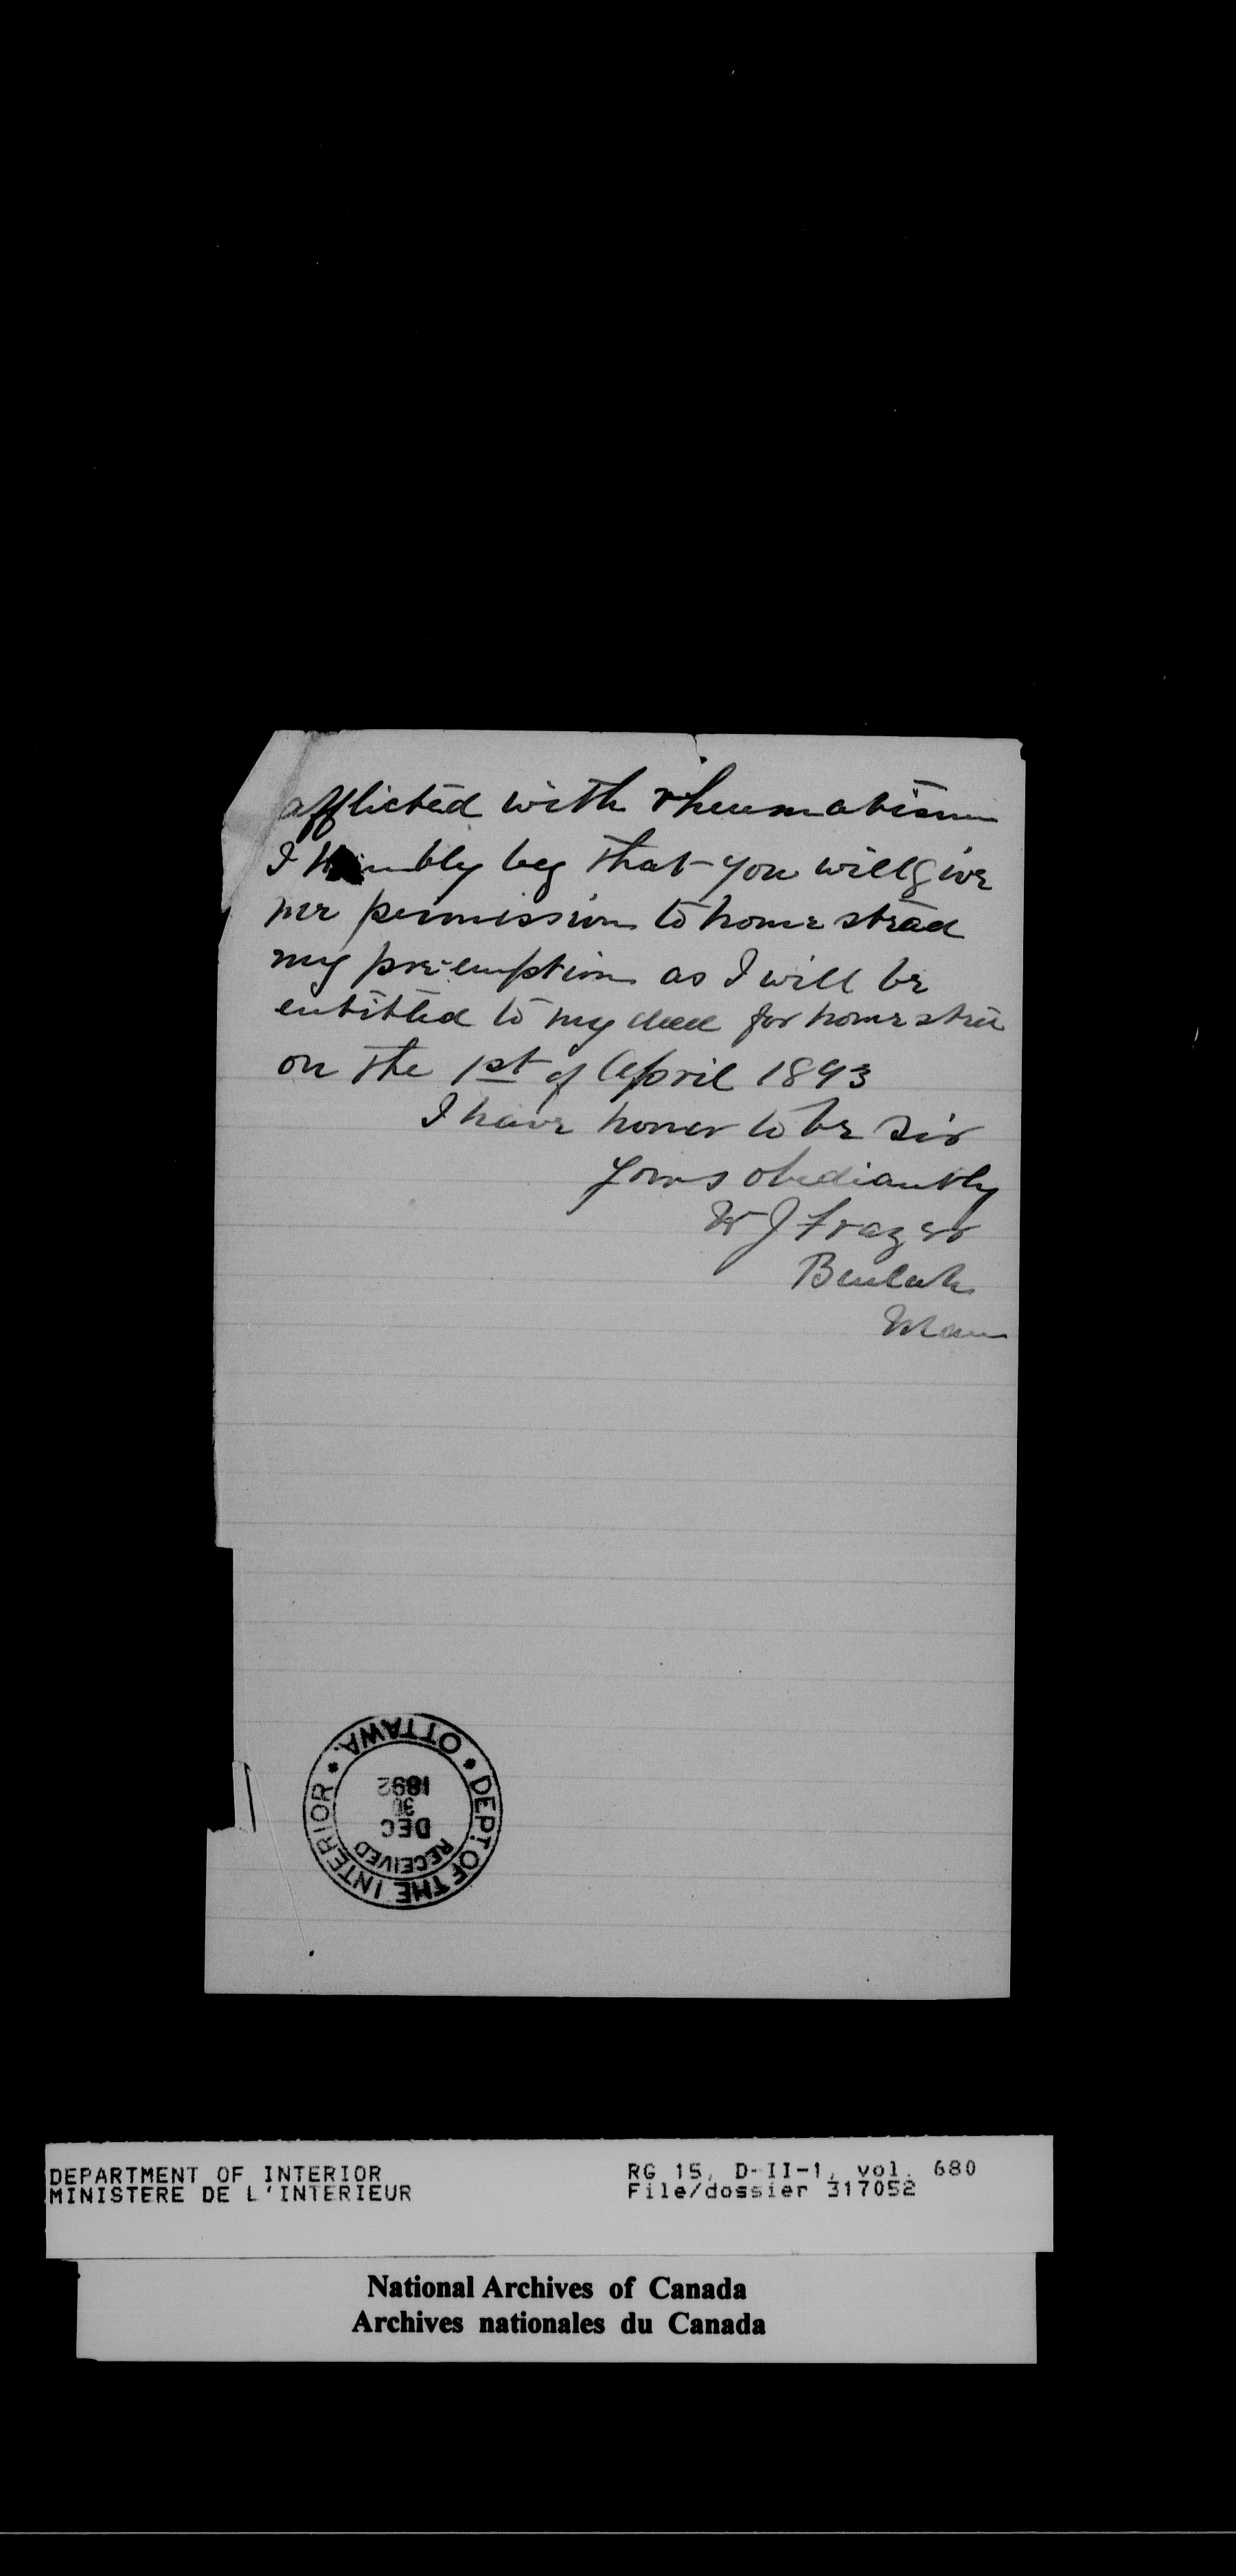 afflicted with rheumatism
I humbly beg that you will give
me permission to home stead
my pre-emption as I will be
entitled to my deed for home stead
on the 1st of April 1893
I have honor to be Sir
Yours obediantly
W J Frazer
Beulah
Man
OTTAWA.
DEPT. OF THE INTERIOR
RECEIVED
DEC
30
1892
DEPARTMENT OF INTERIOR
MINISTERE DE L'INTERIEUR
RG 15, D-II-1, vol. 680
File/dossier 317052
National Archives of Canada
Archives nationales du Canada